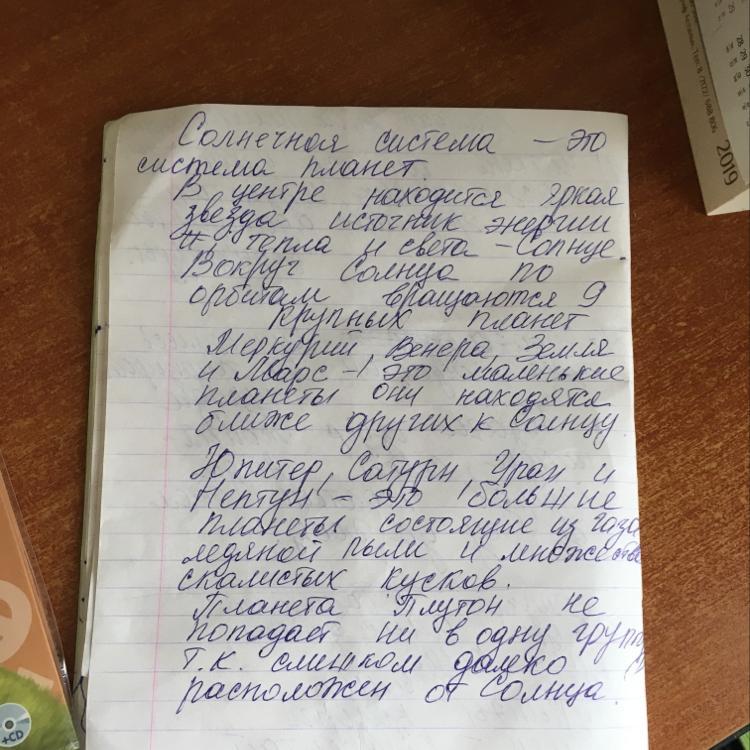 2019
Солнечная система – это
система планет.
В центре находится яркая
звезда источник энергии
и тепла и света – Солнце.
Вокруг Солнца по
орбитам вращаются 9
крупных планет
Меркурий, Венера, Земля
и Марс – это маленькие
планеты они находятся
ближе других к Солнцу
Юпитер, Сатурн, Уран и
Нептун – это большие
планеты состоящие из газа
ледяной пыли и множества
скалистых кусков.
Планета Плутон не
попадает ни в одну групп
т.к. слишком далеко
расположен от Солнца.
+CD